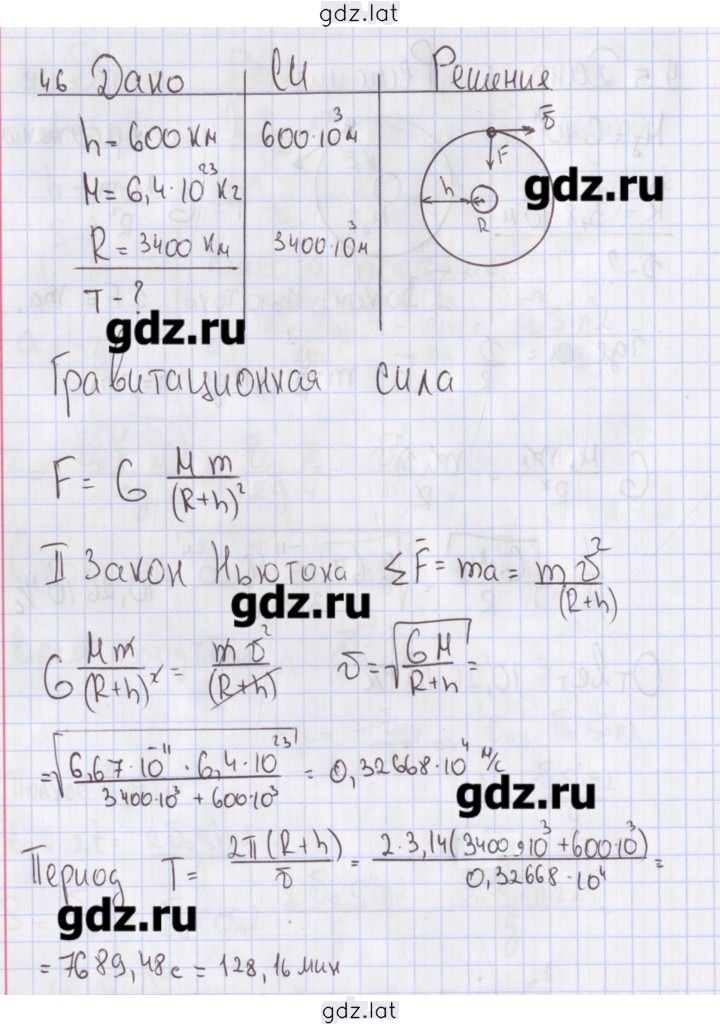 gdz.lat
46 Дано СИ Решения
h = 600 км 600·10³м
M = 6,4·10²³ кг
R = 3400 км 3400·10³м
T - ?
v̄
F
h
R
gdz.ru
gdz.ru
Гравитационная сила
F = G Mm/(R+h)²
II Закон Ньютона ΣF̄ = ma = mv²/(R+h)
gdz.ru
G Mm/(R+h)² = mv²/(R+h) v = √(GM/(R+h)) =
= √(6,67·10⁻¹¹ · 6,4·10²³/(3400·10³ + 600·10³)) = 0,32668·10⁴ м/с
gdz.ru
Период T = 2π(R+h)/v = 2·3,14(3400·10³+600·10³)/(0,32668·10⁴) =
gdz.ru
= 7689,48с = 128,16 мин
gdz.lat